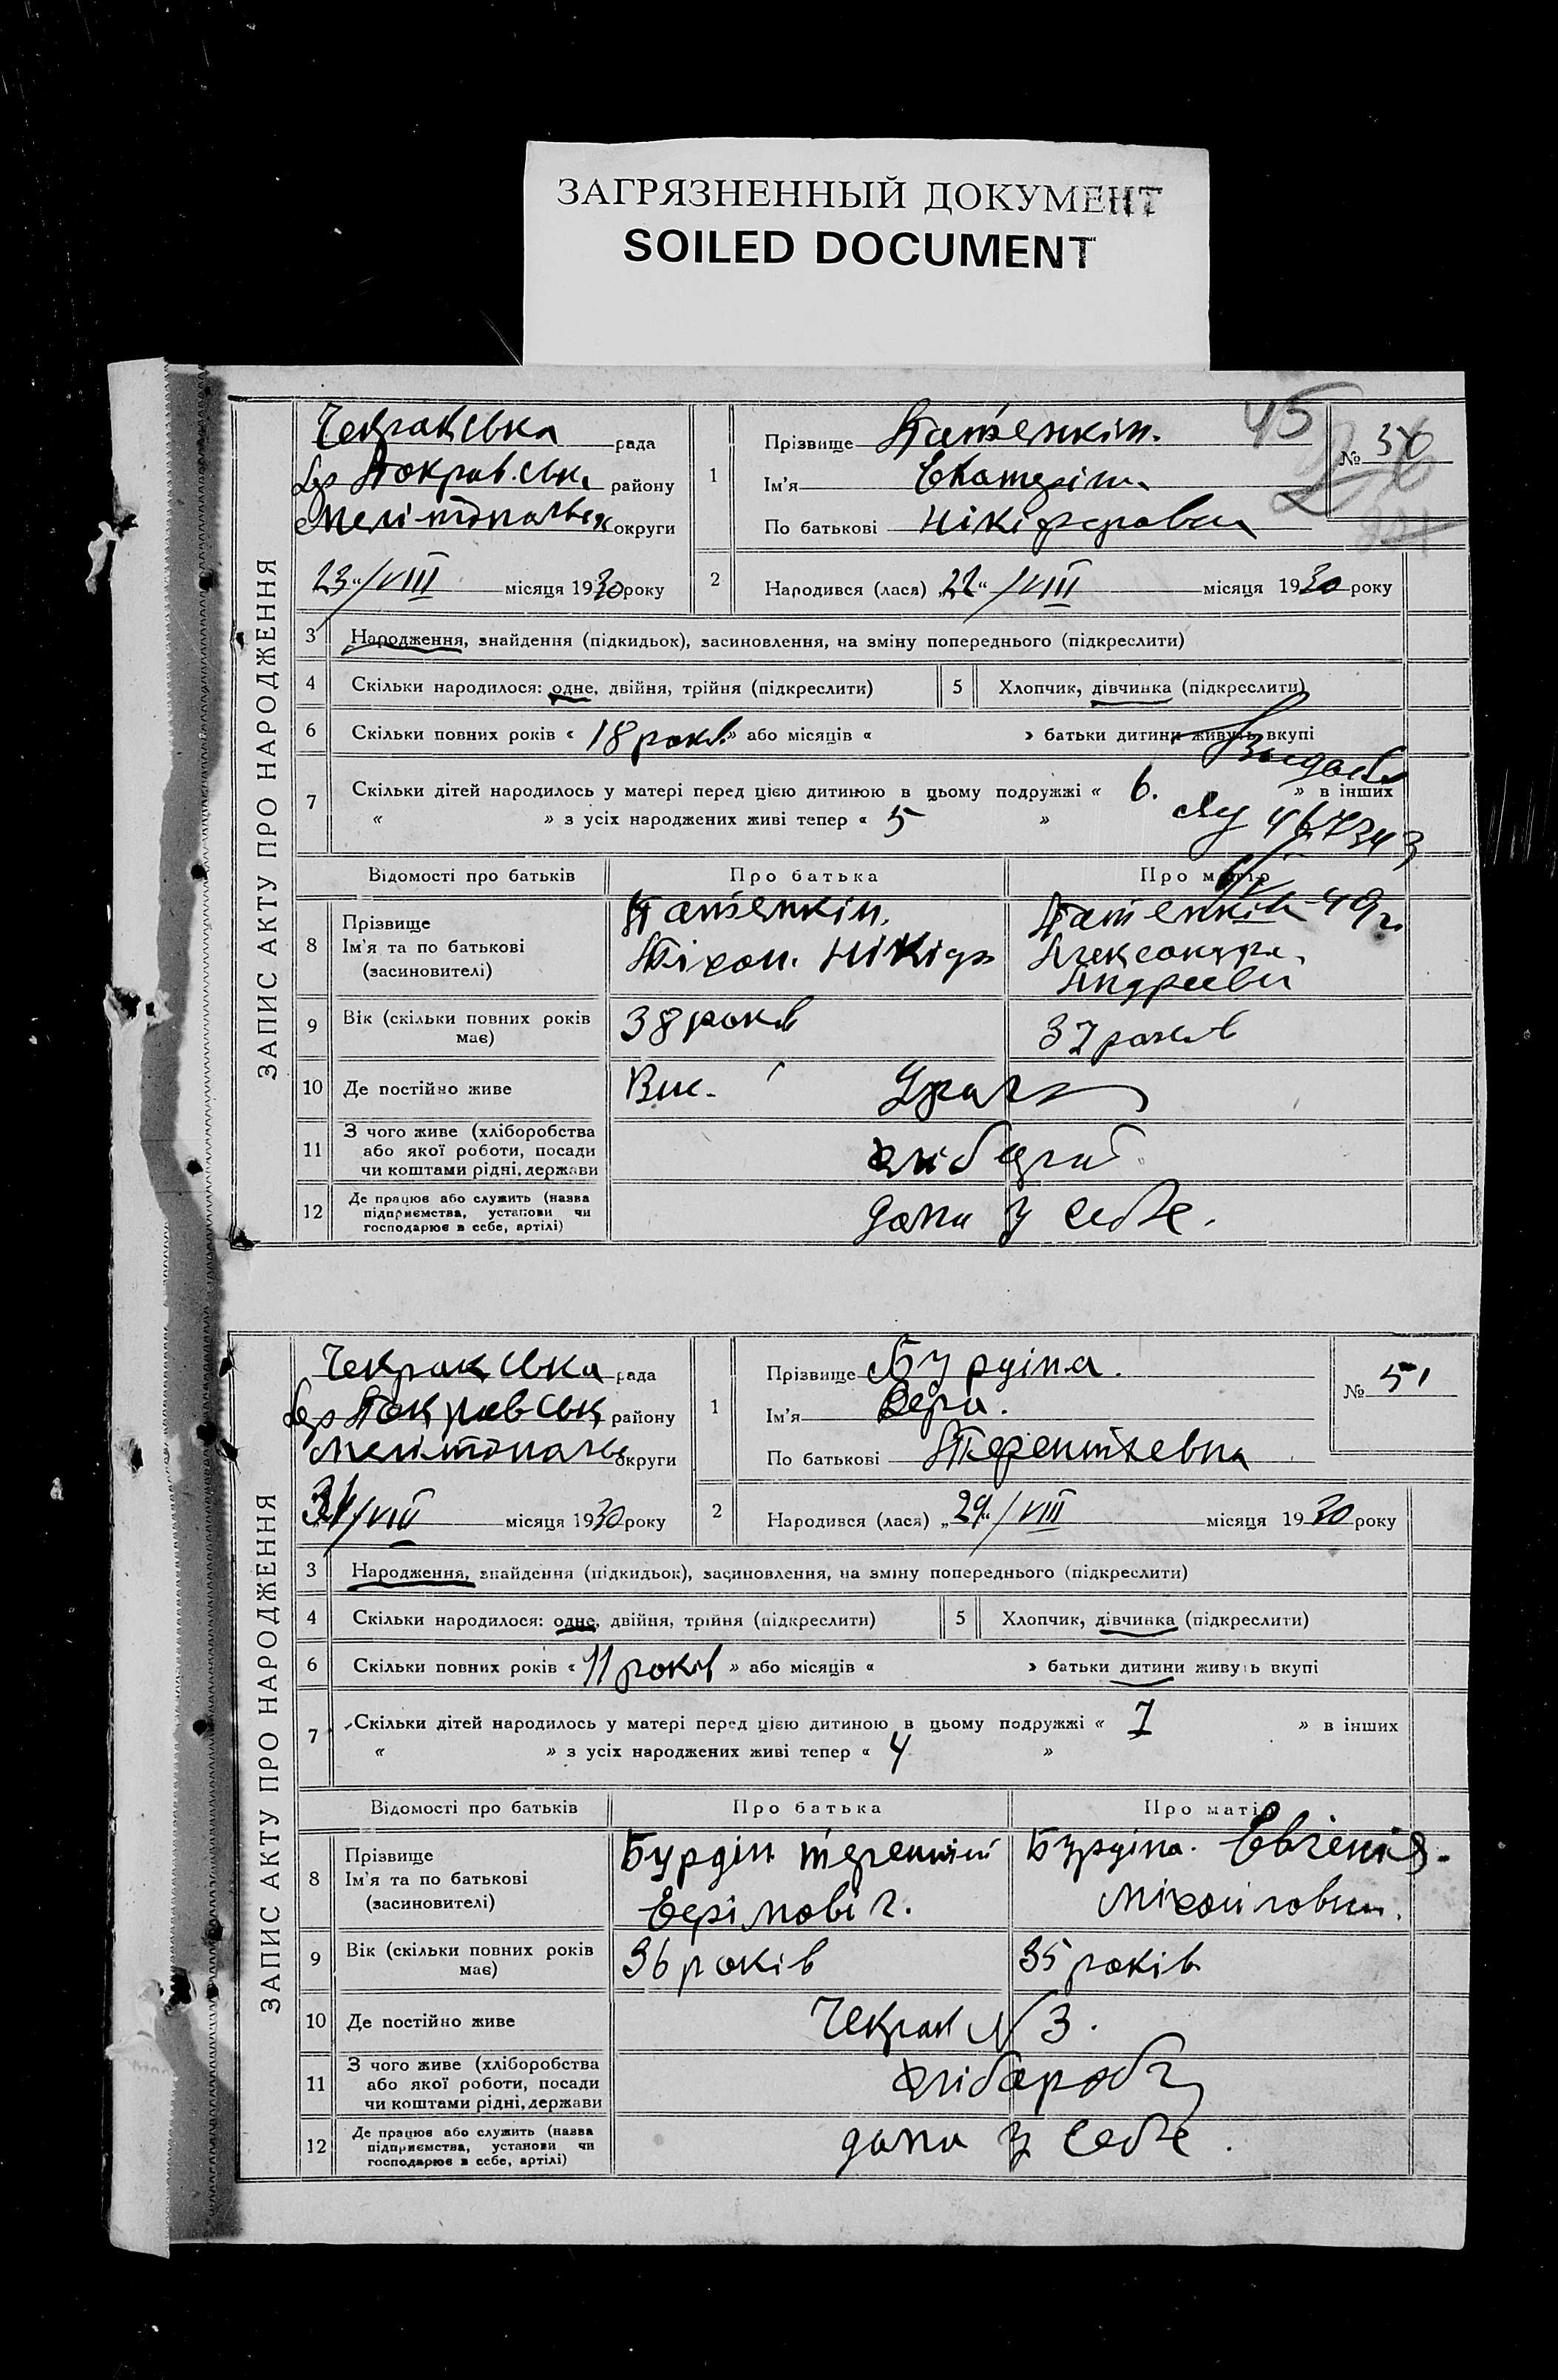 ЗАГРЯЗНЕННЫЙ ДОКУМЕНТ
SOILED DOCUMENT
ЗАПИС АКТУ ПРО НАРОДЖЕННЯ
Чекракська рада
Покровськ району
Мелітопальськ округи
23/VIII місяця 1930 року
1
Прізвище Патенкін.
Ім'я Екатеріна
По батькові Нікіфаровна
45
№ 50
2
Народився (лася) „22“/VIII місяця 1930 року
3 Народження, знайдення (підкидьок), засиновлення, на зміну попереднього (підкреслити)
4 Скільки народилося: одне, двійня, трійня (підкреслити)
5 Хлопчик, дівчинка (підкреслити)
6 Скільки повних років « 18 років » або місяців « » батьки дитини живуть вкупі
7 Скільки дітей народилось у матері перед цією дитиною в цьому подружжі « 6. » в інших
« » з усіх народжених живі тепер « 5 »
Відомості про батьків Про батька Про матір
8 Прізвище
Ім'я та по батькові
(засиновителі)
Патенкін.
Тіхон. Нікіф
Патенкін
Александра
Андреевн
9 Вік (скільки повних років має)
38 років
37 років
10 Де постійно живе
11 З чого живе (хліборобства
або якої роботи, посади
чи коштами рідні, держави
12 Де працює або служить (назва
підприємства, установи чи
господарює в себе, артілі)
дома у себе.
ЗАПИС АКТУ ПРО НАРОДЖЕННЯ
Чекракська рада
Покравськ району
Мелітопальс округи
31/VIII місяця 1930 року
1
Прізвище Бурдіна.
Ім'я Вера.
По батькові Терентьевна
№ 51
2
Народився (лася) „29“/VIII місяця 1930 року
3 Народження, знайдення (підкидьок), засиновлення, на зміну попереднього (підкреслити)
4 Скільки народилося: одне, двійня, трійня (підкреслити)
5 Хлопчик, дівчинка (підкреслити)
6 Скільки повних років « 11 років » або місяців « » батьки дитини живуть вкупі
7 Скільки дітей народилось у матері перед цією дитиною в цьому подружжі « 7 » в інших
« » з усіх народжених живі тепер « 4 »
Відомості про батьків Про батька Про матір
8 Прізвище
Ім'я та по батькові
(засиновителі)
Бурдін терентій
Ефімовіч.
Бурдіна. Евгенія.
Міхайловна.
9 Вік (скільки повних років має)
36 років
35 років
10 Де постійно живе
Чекрак N 3.
11 З чого живе (хліборобства
або якої роботи, посади
чи коштами рідні, держави
хлібороб
12 Де працює або служить (назва
підприємства, установи чи
господарює в себе, артілі)
дома у себе.